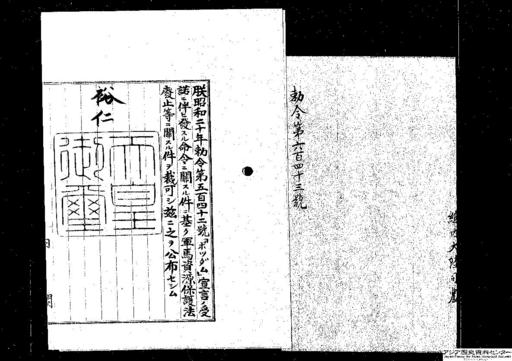 勅令第六百四十三號
朕昭和二十年勅令第五百四十二號「ポツダム」宣言ノ受
諾ニ伴ヒ發スル命令ニ關スル件ニ基ク軍馬資源保護法
廢止等ニ關スル件ヲ裁可シ玆ニ之ヲ公布セシム
裕仁
天皇
御璽
アジア歴史資料センター